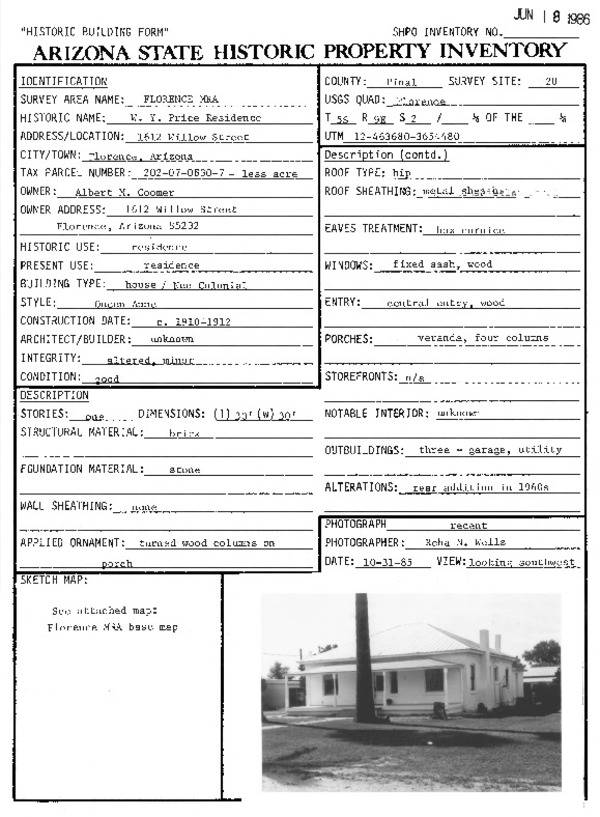 JUN 18 1986
"HISTORIC BUILDING FORM" SHPO INVENTORY NO.
ARIZONA STATE HISTORIC PROPERTY INVENTORY
IDENTIFICATION
SURVEY AREA NAME: FLORENCE MRA
HISTORIC NAME: W. Y. Price Residence
ADDRESS/LOCATION: 1612 Willow Street
CITY/TOWN: Florence, Arizona
TAX PARCEL NUMBER: 202-07-0830-7 - less acre
OWNER: Albert M. Coomer
OWNER ADDRESS: 1612 Willow Street
Florence, Arizona 85232
HISTORIC USE: residence
PRESENT USE: residence
BUILDING TYPE: house / Neo Colonial
STYLE: Queen Anne
CONSTRUCTION DATE: c. 1910-1912
ARCHITECT/BUILDER: unknown
INTEGRITY: altered, minor
CONDITION: good
COUNTY: Pinal SURVEY SITE: 20
USGS QUAD: Florence
T 5S R 9E S 2 / ¼ OF THE ¼
UTM 12-463680-3654480
Description (contd.)
ROOF TYPE: hip
ROOF SHEATHING: metal
EAVES TREATMENT: box cornice
WINDOWS: fixed sash, wood
ENTRY: central entry, wood
PORCHES: veranda, four colums
STOREFRONTS: n/a
NOTABLE INTERIOR: unknown
OUTBUILDINGS: three - garage, utility
ALTERATIONS: rear addition in 1960s
DESCRIPTION
STORIES: one DIMENSIONS: (l) (w)
STRUCTURAL MATERIAL: brick
FOUNDATION MATERIAL: stone
WALL SHEATHING: none
APPLIED ORNAMENT: turned wood columns on
porch
PHOTOGRAPH recent
PHOTOGRAPHER: N. Wells
DATE: 10-31-85 VIEW: looking southwest
SKETCH MAP:
See attached map:
Florence MRA base map